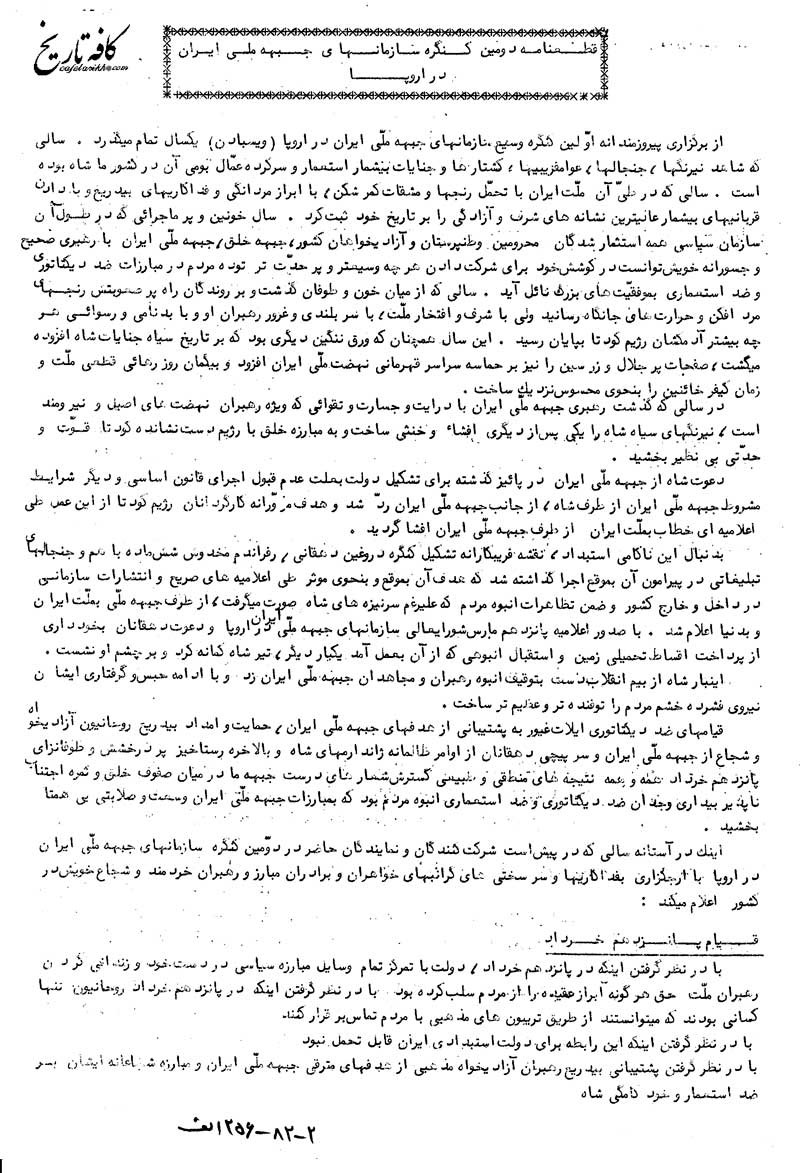 کافه تاریخ
cafetarikh.com
قطعنامه دومین کنگره سازمانهای جبهه ملی ایران
در اروپا
از برگزاری پیروزمندانه اولین کنگره وسیع سازمانهای جبهه ملّی ایران در اروپا (ویسبادن) یکسال تمام میگذرد . سالی
که شاهد نیرنگها، جنجالها، عوامفریبیها، کشتارها و جنایات بیشمار استعمار و سرکرده عمّال بومی آن در کشور ما شاه بوده
است . سالی که در طیّ آن ملّت ایران با تحمّل رنجها و مشقات کمر شکن، با ابراز مردانگی و فداکاریهای بیدریغ و با دادن
قربانیهای بیشمار عالیترین نشانه های شرف و آزادگی را بر تاریخ خود ثبت کرد . سال خونین و پر ماجرائی که در طول آن
سازمان سیاسی همه استثمار شدگان محرومین وطنپرستان و آزادیخواهان کشور، جبهه خلق، جبهه ملی ایران با رهبری صحیح
و جسورانه خویش توانست در کوشش خود برای شرکت دادن هر چه وسیعتر و پر حدّت تر توده مردم در مبارزات ضد دیکتاتوری
و ضد استعماری بموفقیّت های بزرگ نائل آید . سالی که از میان خون و طوفان گذشت و بر روندگان راه پر صعوبتش رنجهای
مرد افکن و حرارت های جانگاه رسانید ولی با شرف و افتخار ملّت، با سر بلندی و غرور رهبران او و با بدنامی و رسوائی هر
چه بیشتر آدمکشان رژیم کودتا بپایان رسید . این سال همچنان که ورق ننگین دیگری بود که بر تاریخ سیاه جنایات شاه افزوده
میگشت، صفحات پر جلال و زرین را نیز بر حماسه سراسر قهرمانی نهضت ملّی ایران افزود و بیگمان روز رهائی قطعی ملّت و
زمان کیفر خائنین را بنحوی محسوس نزدیك ساخت .
در سالی که گذشت رهبری جبهه ملّی ایران با درایت و جسارت و تقوائی که ویژه رهبران نهضت های اصیل و نیرومند
است، نیرنگهای سیاه شاه را یکی پس از دیگری افشاء و خنثی ساخت و به مبارزه خلق با رژیم دست نشانده کودتا قوّت و
حدّتی بی نظیر بخشید .
دعوت شاه از جبهه ملی ایران در پائیز گذشته برای تشکیل دولت بعلت عدم قبول اجرای قانون اساسی و دیگر شرایط
مشروط جبهه ملّی ایران از طرف شاه، از جانب جبهه ملی ایران ردّ شد و هدف مزوّرانه کارگردانان رژیم کودتا از این عمل طی
اعلامیه ای خطاب بملت ایران از طرف جبهه ملی ایران افشا گردید .
بدنبال این ناکامی استبداد، نقشه فریبکارانه تشکیل کنگره دروغین دهقانی، رفراندم مخدوش ششماده با هم و جنجالهای
تبلیغاتی در پیرامون آن بموقع اجرا گذاشته شد که هدف آن بموقع و بنحوی موثر طی اعلامیه های صریح و انتشارات سازمانی
در داخل و خارج کشور و ضمن تظاهرات انبوه مردم که علیرغم سرنیزه های شاه صورت میگرفت، از طرف جبهه ملّی بملت ایران
و بدنیا اعلام شد . با صدور اعلامیه پانزدهم مارس شورایعالی سازمانهای جبهه ملّی ایران در اروپا و دعوت دهقانان بخودداری
از پرداخت اقساط تحمیلی زمین و استقبال انبوهی که از آن بعمل آمد یکبار دیگر، تیر شاه کمانه کرد و بر چشم او نشست .
اینبار شاه از بیم انقلاب دست بتوقیف انبوه رهبران و مجاهدان جبهه ملّی ایران زد و با ادامه حبس و گرفتاری ایشان
نیروی فشرده خشم مردم را توفنده تر و عظیم تر ساخت .
قیامهای ضد دیکتاتوری ایلات غیور به پشتیبانی از هدفهای جبهه ملّی ایران، حمایت و امداد بیدریغ روحانیون آزادیخواه
و شجاع از جبهه ملّی ایران و سر پیچی دهقانان از اوامر ظالمانه ژاندارمهای شاه و بالاخره رستاخیز پر درخشش و طوفانزای
پانزدهم خرداد همه و همه نتیجه های منطقی و طبیعی گسترش شعار های درست جبهه ما در میان صفوف خلق و ثمره اجتناب
ناپذیر بیداری وجدان ضد دیکتاتوری و ضد استعماری انبوه مردم بود که بمبارزات جبهه ملّی ایران وسعت و صلابتی بی همتا
بخشید .
اینك در آستانه سالی که در پیش است شرکت کنندگان و نمایندگان حاضر در دوّمین کنگره سازمانهای جبهه ملّی ایران
در اروپا با ارجگزاری بفداکاریها و سر سختی های گرانبهای خواهران و برادران مبارز و رهبران خردمند و شجاع خویش در
کشور اعلام میکند :
قیام پانزدهم خرداد
با در نظر گرفتن اینکه در پانزدهم خرداد، دولت با تمرکز تمام وسایل مبارزه سیاسی در دست خود و زندانی کردن
رهبران ملّت حق هر گونه ابراز عقیده را از مردم سلب کرده بود . با در نظر گرفتن اینکه در پانزدهم خرداد روحانیون تنها
کسانی بودند که میتوانستند از طریق تریبون های مذهبی با مردم تماس بر قرار کنند.
با در نظر گرفتن اینکه این رابطه برای دولت استبدادی ایران قابل تحمل نبود
با در نظر گرفتن پشتیبانی بیدریغ رهبران آزادیخواه مذهبی از هدفهای مترقی جبهه ملّی ایران و مبارزه شجاعانه ایشان بر
ضد استعمار و خودکامگی شاه
۲-۸۲-۱۲۵۶الف